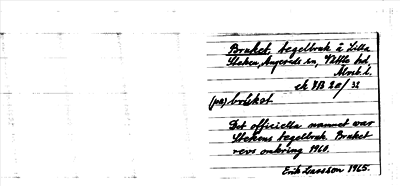 Bruket, tegelbruk å Lilla
Steken, Angereds sn, Vättle hd,
Älvsb. l.
ek 7B 2e/32
(på) brúket
Det officiella namnet var
Stekens tegelbruk. Bruket
revs omkring 1960.
Erik Larsson 1965.